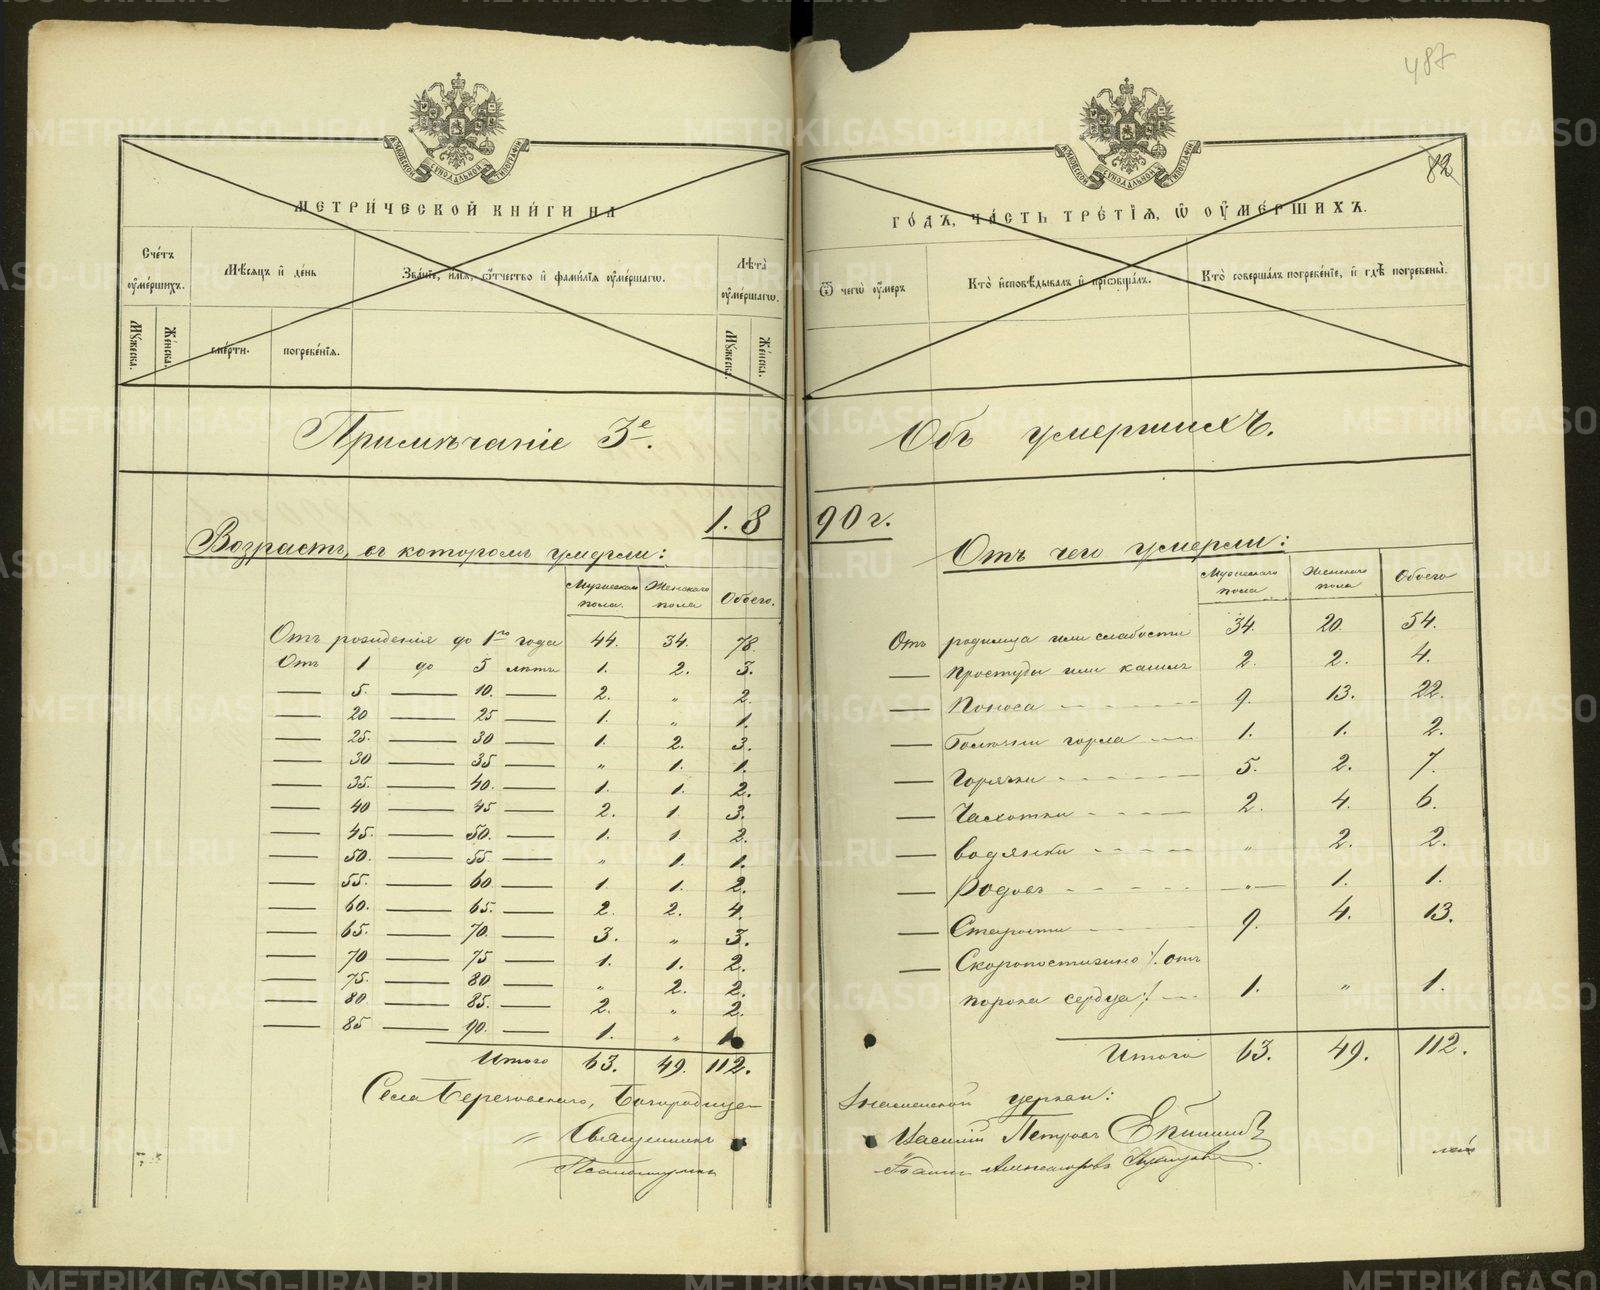 487
82
МЕТРИ́ЧЕСКОЙ КНИ́ГИ НА
ГО́ДЪ, ЧА́СТЬ ТРЕ́ТІѦ, Ѿ ОУ҆МЕ́РШИХЪ.
Сче́тъ оу҆ме́ршихъ.
Мѣ́сяцъ и де́нь
Зва́ніе, имя, ѻ҆́тчество и фами́лія оу҆ме́ршагѡ.
Лѣта̀ оу҆ме́ршагѡ.
Ѿ чегѡ̀ оу҆́меръ
Кто̀ исповѣ́дывалъ и прїѡбща́лъ.
Кто̀ соверша́лъ погребе́ніе, и гдѣ̀ погребены̀.
Му́жеска.
Же́нска.
сме́рти.
погребе́нія.
Му́жеска.
Же́нска.
Примѣчаніе 3е.
Объ умершихъ.
1.8 90 г.
Возрастъ, въ которомъ умерли:
Мужескаго пола.
Женскаго пола
Обоего.
Отъ рожденія до 1го года 44. 34. 78.
Отъ 1 до 5 лѣтъ 1. 2. 3.
— 5. — 10. — 2. „ 2.
— 20 — 25 — 1. „ 1.
— 25. — 30 — 1. 2. 3.
— 30 — 35 — „ 1. 1.
— 35. — 40. — 1. 1. 2.
— 40 — 45 — 2. 1. 3.
— 45. — 50. — 1. 1. 2.
— 50. — 55. — „ 1. 1.
— 55. — 60. — 1. 1. 2.
— 60. — 65. — 2. 2. 4.
— 65. — 70. — 3. „ 3.
— 70 — 75 — 1. 1. 2.
— 75. — 80 — „ 2. 2.
— 80. — 85. — 2. „ 2.
— 85 — 90. — 1. „ 1.
Итого 63. 49. 112.
Отъ чего умерли:
Мужескаго пола
Женскаго пола
Обоего
Отъ родимца или слабости 34. 20. 54.
— простуды или кашля 2. 2. 4.
— Поноса 9. 13. 22.
— Болѣзни горла 1. 1. 2.
— Горячки 5. 2. 7.
— Чахотки 2. 4. 6.
— водянки „ 2. 2.
— Родовъ „ 1. 1.
— Старости 9. 4. 13.
— Скоропостижно /. отъ
порока сердца ./ 1. „ 1.
Итого 63. 49. 112.
Села Березовскаго, Богородице-
Знаменской церкви:
„ Священникъ Василій Петровъ
Псаломщикъ Александровъ
METRIKI.GASO-URAL.RU